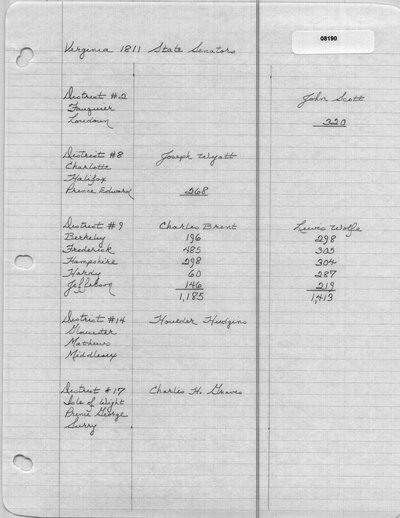 08190
Virginia 1811 State Senators
District #2 John Scott
Fauquier
Loudoun 320
District #8 Joseph Wyatt
Charlotte
Halifax
Prince Edward 268
District #9 Charles Brent Lewis Wolfe
Berkeley 196 298
Frederick 485 305
Hampshire 298 304
Hardy 60 287
Jefferson 146 219
1,185 1,413
District #14 Houlder Hudgins
Gloucester
Mathews
Middlesex
District #17 Charles H. Graves
Isle of Wight
Prince George
Surry